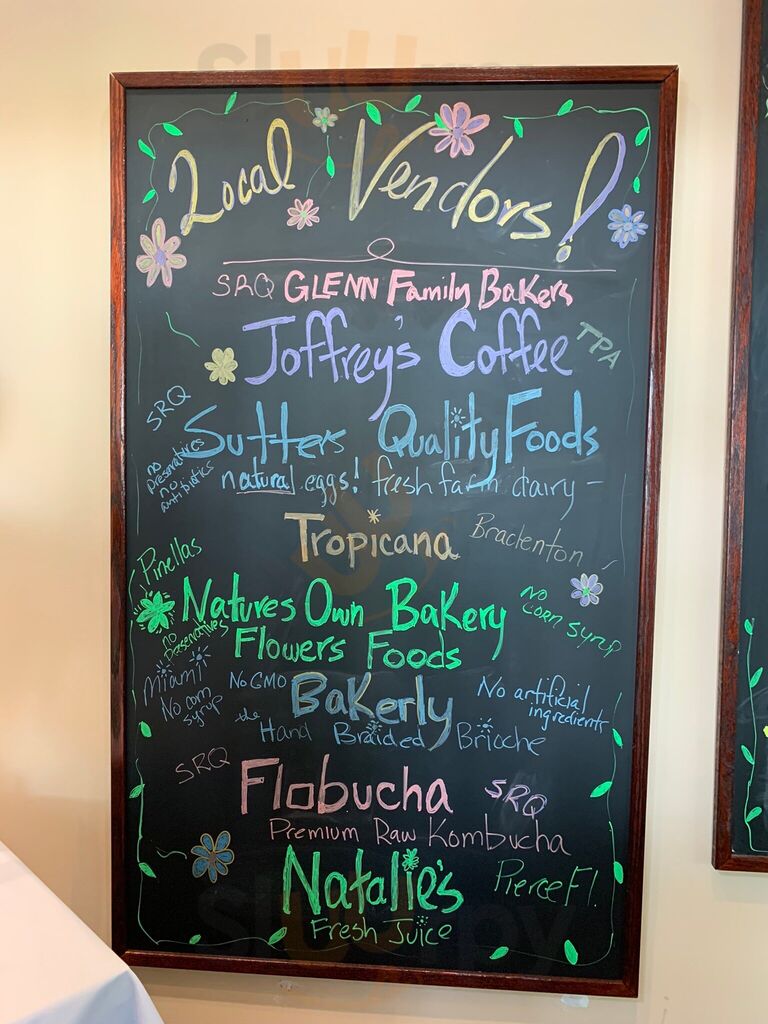 Local Vendors!
SRQ GLENN Family Bakers
Joffrey's Coffee TPA
SRQ
Sutters Quality Foods
no preservatives
no antibiotics
natural eggs! fresh farm dairy -
Tropicana Bradenton
Pinellas
Natures Own Bakery
no preservatives
Flowers Foods
No corn syrup
Miami
No corn syrup
No GMO
Bakerly
No artificial ingredients
the Hand Braided Brioche
SRQ
Flobucha SRQ
Premium Raw Kombucha
Natalie's Pierce Fl.
Fresh Juice